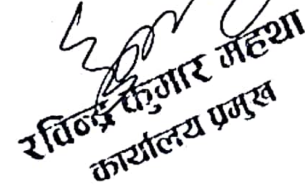 रविन्द्र कुमार महथा
कार्यालय प्रमुख